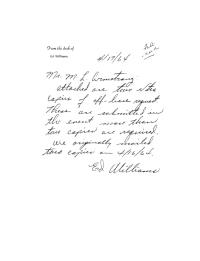 From the desk of
Ed Williams
4/17/64
Mr. M L Armstrong
attached are two extra
copies of off-base request
These are submitted in
the event more than
two copies are required.
We originally mailed
two copies on 4/16/64.
Ed Williams